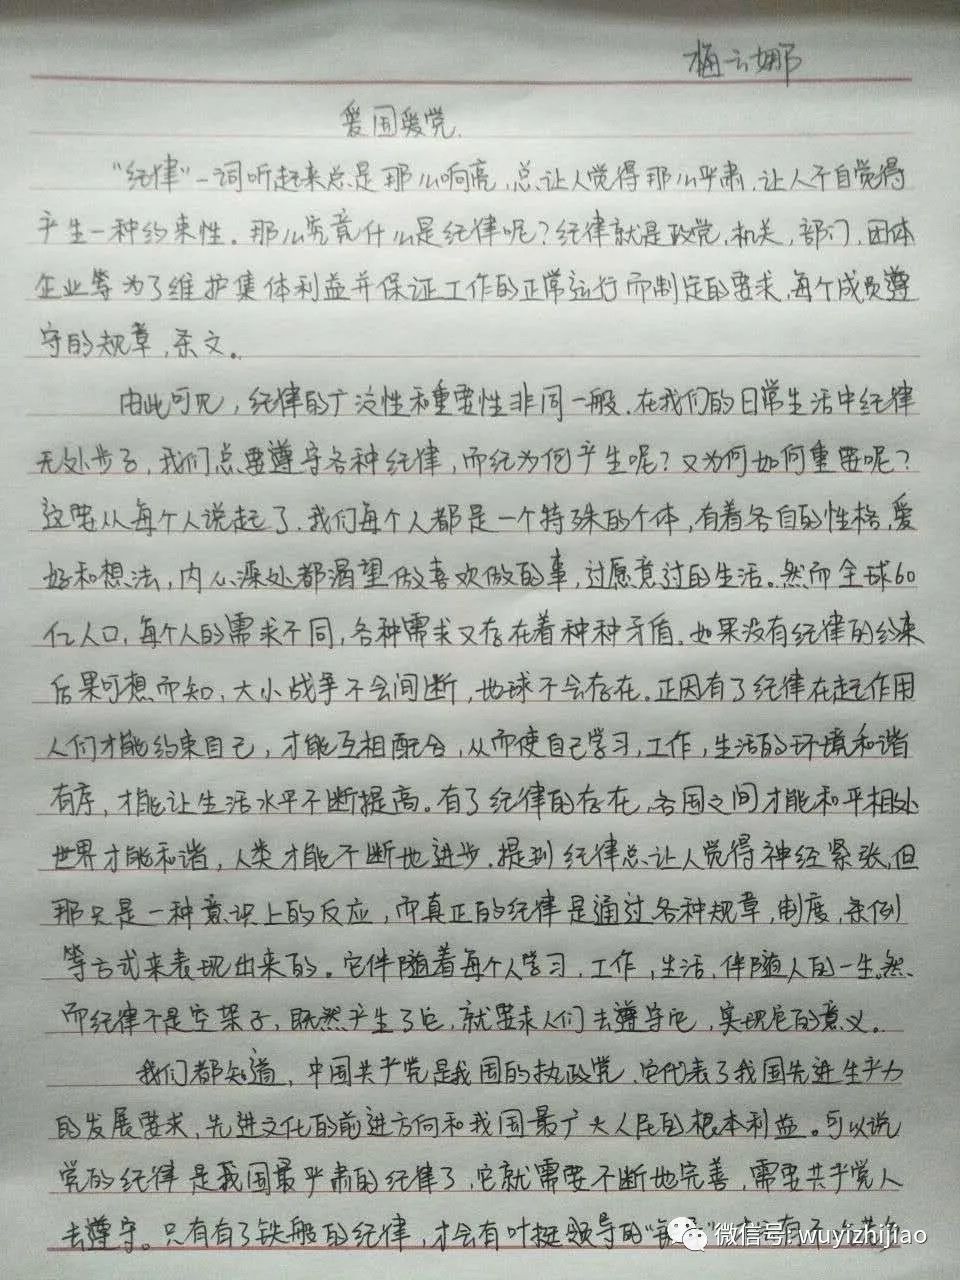 梅云娜
爱国爱党.
"纪律"一词听起来总是那么响亮,总让人觉得那么严肃,让人不自觉得
产生一种约束性。那么究竟什么是纪律呢?纪律就是政党,机关,部门,团体
企业等为了维护集体利益并保证工作的正常运行而制定的要求,每个成员遵
守的规章,条文。
由此可见,纪律的广泛性和重要性非同一般.在我们的日常生活中纪律
无处步子,我们总要遵守各种纪律,而纪为何产生呢?又为何如何重要呢?
这要从每个人说起了.我们每个人都是一个特殊的个体,有着各自的性格,爱
好和想法,内心深处都渴望做喜欢做的事,过愿意过的生活。然而全球60
亿人口,每个人的需求不同,各种需求又存在着种种矛盾.如果没有纪律的约束
后果可想而知,大小战争不会间断,地球不会存在.正因有了纪律在起作用
人们才能约束自己,才能互相配合,从而使自己学习,工作,生活的环境和谐
有序,才能让生活水平不断提高。有了纪律的存在,各国之间才能和平相处
世界才能和谐,人类才能不断地进步.提到纪律总让人觉得神经紧张,但
那只是一种意识上的反应,而真正的纪律是通过各种规章,制度,条例
等方式来表现出来的。它伴随着每个人学习,工作,生活,伴随人的一生.然
而纪律不是空架子,既然产生了它,就要求人们去遵守它,实现它的意义。
我们都知道,中国共产党是我国的执政党.它代表了我国先进生产力
的发展要求,先进文化的前进方向和我国最广大人民的根本利益。可以说
党的纪律是我国最严肃的纪律了,它就需要不断地完善,需要共产党人
去遵守。只有有了铁般的纪律,才会有叶挺领导的"
微信号: wuyizhijiao